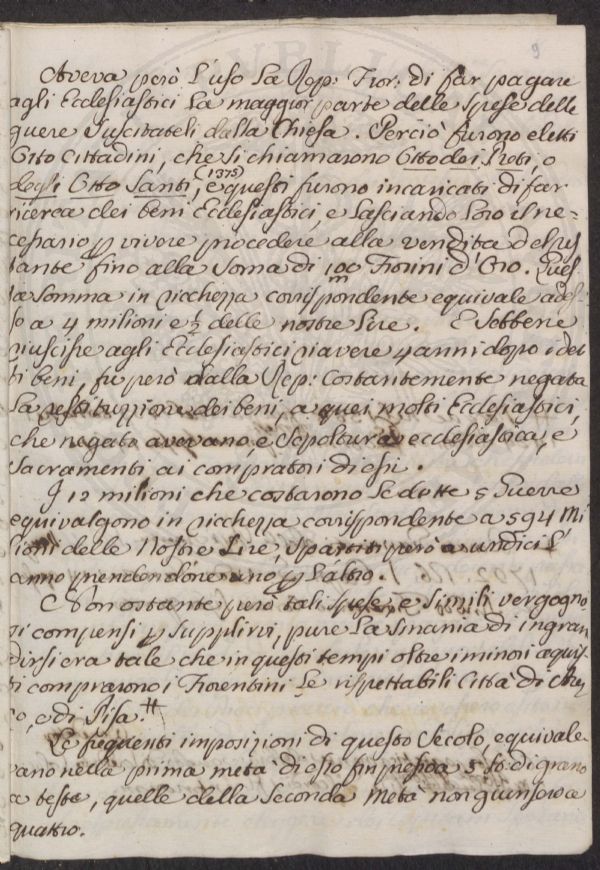 9
Aveva però l'uso la Rep: Fior: di far pagare
agli Ecclesiastici la maggior parte delle Spese delle
guere suscitateli dalla Chiesa. Perciò furono eletti
Otto Cittadini, che si chiamarono Otto dei Preti, o
degli Otto Santi, (1375) e questi furono incaricati di far
ricerca dei beni Ecclesiastici, e lasciando loro il ne=
cessario p vivere procedere alla vendita del res
tante fino alla Soma di 100 m Fiorini d'Oro. Ques
ta somma in ricchezza corrispondente equivale ades
so a 4 milioni e ½ delle nostre Lire. E Sebbene
riuscisse agli Ecclesiastici riavere 4 anni dopo i det
ti beni, fu però dalla Rep: Costantemente negata
la restituzione dei beni, a quei molti Ecclesiastici,
che negata avevano, e Sepoltura ecclesiastica, e
Sacramenti ai compratori di essi.
I 12 milioni che costarono le dette 5 Guerre
equivalgono in ricchezza corrispondente a 594 Mi
lioni delle Nostre Lire, Spartiti però a undici l'
anno prendendone uno p l'altro.
Non ostante però tali spese e simili vergogno
si compensi p supplirvi, pure la smania di ingran
dirsi era tale che in questi tempi oltre i minori aquis
ti comprarono i Fiorentini le rispettabili Città di Arez
zo, e di Pisa.
Le seguenti imposizioni di questo Secolo, equivale
vano nella prima metà di esso fin presso a 5 di grano
a testa, quelle della Seconda Metà non giunsero a
quattro.